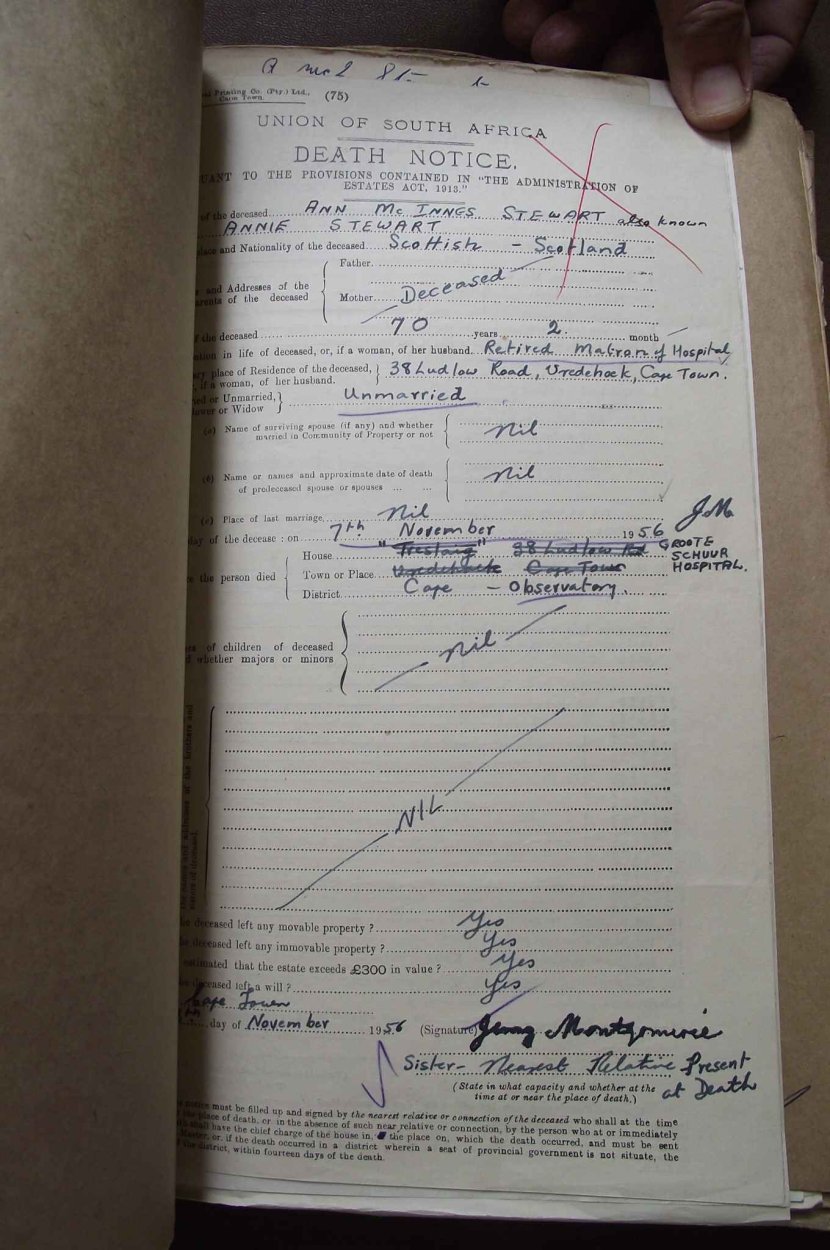 Printing Co. (Pty.) Ltd.,
Cape Town.
(75)
UNION OF SOUTH AFRICA
DEATH NOTICE,
UANT TO THE PROVISIONS CONTAINED IN "THE ADMINISTRATION OF
ESTATES ACT, 1913."
of the deceased ANN McINNES STEWART also known
ANNIE STEWART
lace and Nationality of the deceased Scottish - Scotland
Father
and Addresses of the
arents of the deceased
Mother Deceased
f the deceased 70 years 2 month
tion in life of deceased, or, if a woman, of her husband. Retired Matron of Hospital
ary place of Residence of the deceased, 38 Ludlow Road, Vredehoek, Cape Town.
if a woman, of her husband.
ied or Unmarried, Unmarried
ower or Widow
(a) Name of surviving spouse (if any) and whether
married in Community of Property or not
Nil
(b) Name or names and approximate date of death
of predeceased spouse or spouses ... ...
Nil
(c) Place of last marriage Nil
JM
day of the decease : on 7th November 1956
House 38 Ludlow Rd GROOTE
SCHUUR
HOSPITAL.
e the person died
Town or Place Vredehoek Cape Town
District Cape - Observatory.
es of children of deceased
d whether majors or minors
Nil
NIL
he deceased left any movable property ? Yes
he deceased left any immovable property ? Yes
estimated that the estate exceeds £300 in value ? Yes
he deceased left a will ? Yes
Cape Town
day of November 1956 (Signature) Jenny Montgomerie
Sister - Nearest Relative Present
at Death
(State in what capacity and whether at the
time at or near the place of death.)
notice must be filled up and signed by the nearest relative or connection of the deceased who shall at the time
place of death, or in the absence of such near relative or connection, by the person who at or immediately
shall have the chief charge of the house in, the place on, which the death occurred, and must be sent
Master, or, if the death occurred in a district wherein a seat of provincial government is not situate, the
the district, within fourteen days of the death.